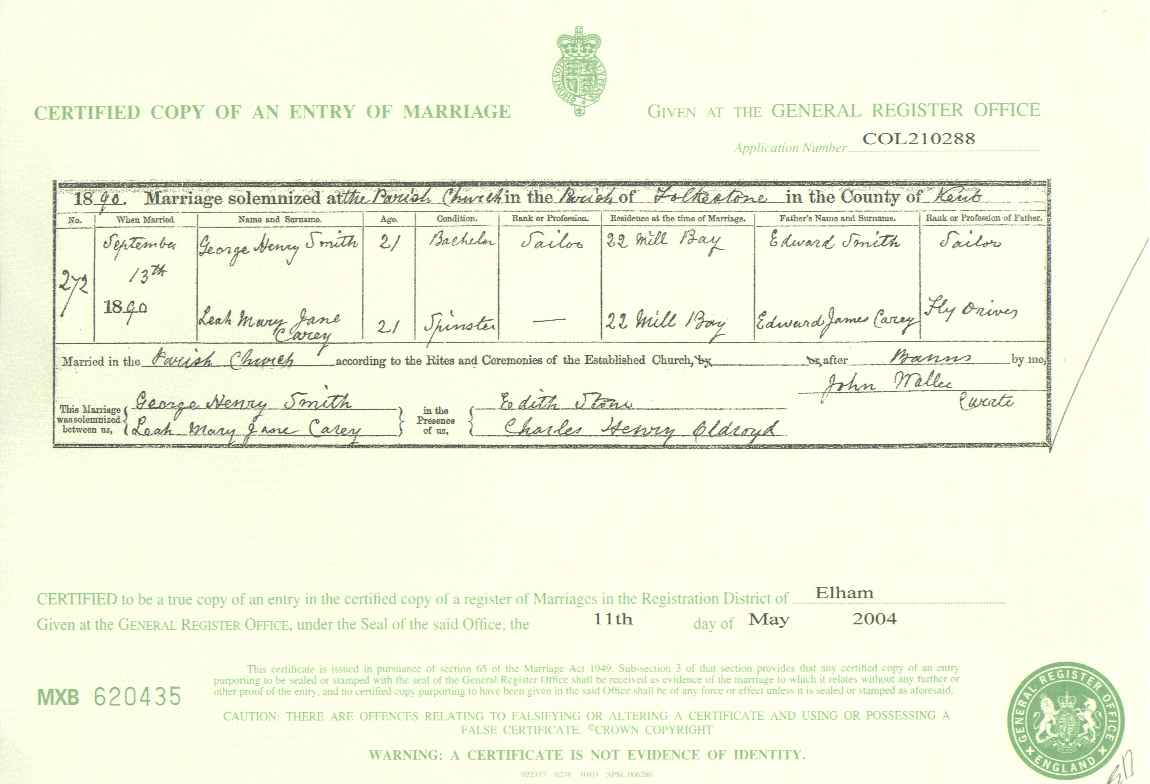 CERTIFIED COPY OF AN ENTRY OF MARRIAGE
GIVEN AT THE GENERAL REGISTER OFFICE
Application Number COL210288
1890. Marriage solemnized at the Parish Church in the Parish of Folkestone in the County of Kent
No. When Married. Name and Surname. Age. Condition. Rank or Profession. Residence at the time of Marriage. Father's Name and Surname. Rank or Profession of Father.
272 September 13th 1890 George Henry Smith 21 Bachelor Sailor 22 Mill Bay Edward Smith Sailor
Leah Mary Jane Carey 21 Spinster — 22 Mill Bay Edward James Carey Fly Driver
Married in the Parish Church according to the Rites and Ceremonies of the Established Church, by or, after Banns by me,
John Curate
This Marriage was solemnized between us, George Henry Smith
Leah Mary Jane Carey
in the Presence of us, Edith Stone
Charles Henry Oldroyd
CERTIFIED to be a true copy of an entry in the certified copy of a register of Marriages in the Registration District of Elham
Given at the GENERAL REGISTER OFFICE, under the Seal of the said Office, the 11th day of May 2004
MXB 620435
This certificate is issued in pursuance of section 65 of the Marriage Act 1949. Sub-section 3 of that section provides that any certified copy of an entry
purporting to be sealed or stamped with the seal of the General Register Office shall be received as evidence of the marriage to which it relates without any further or
other proof of the entry, and no certified copy purporting to have been given in the said Office shall be of any force or effect unless it is sealed or stamped as aforesaid.
CAUTION: THERE ARE OFFENCES RELATING TO FALSIFYING OR ALTERING A CERTIFICATE AND USING OR POSSESSING A
FALSE CERTIFICATE. ©CROWN COPYRIGHT
WARNING: A CERTIFICATE IS NOT EVIDENCE OF IDENTITY.
GENERAL REGISTER OFFICE
ENGLAND